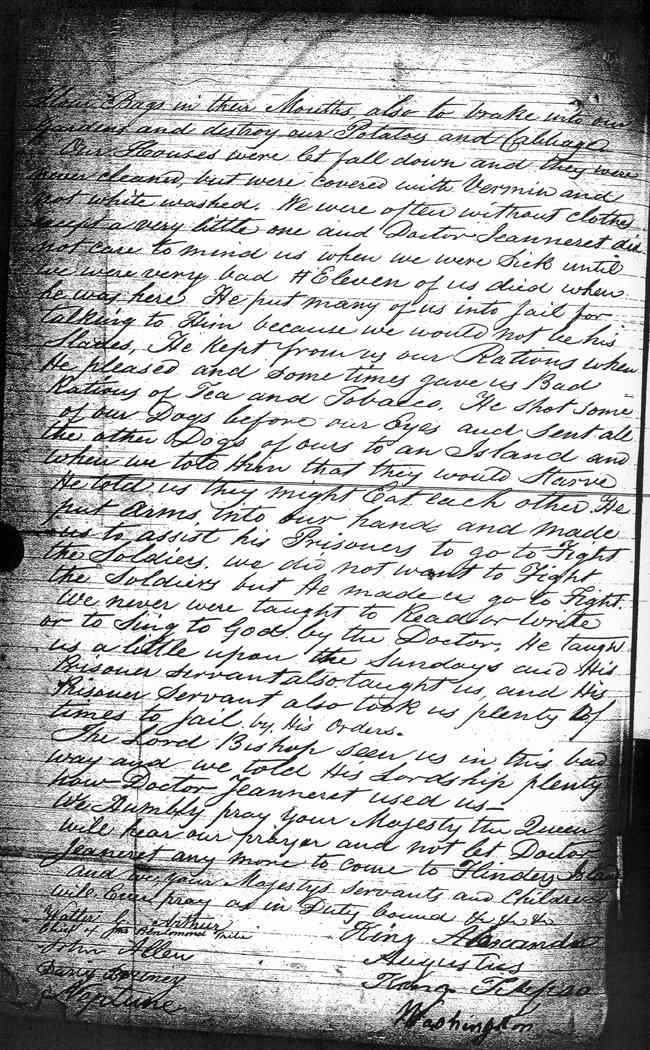 flour Bags in their Mouths also to brake into our
Gardens and destroy our Potatoes and Cabbage
Our Houses were let fall down and they were
never cleaned, but were covered with Vermin and
not white washed. We were often without clothes
except a very little one and Doctor Jeanneret did
not care to mind us when we were Sick until
we were very bad # Eleven of us died when
he was here He put many of us into Jail for
talking to Him because we would not be his
Slades. He kept from us our Rations when
He pleased and some times gave us Bad
Rations of Tea and Tobacco. He shot some
of our Dogs before our Eyes and sent all
the other Dogs of ours to an Island and
when we told Him that they would Starve
He told us they might Eat each other. He
put arms into our hands and made
us to assist his Prisoners to go to Fight
the Soldiers. we did not want to Fight
the Soldiers but He made us go to Fight.
We never were taught to Read or write
or to Sing to God by the Doctor. He taught
us a little upon the Sundays and His
Prisoner Servant also taught us, and His
Prisoner Servant also took us plenty of
times to Jail by His Orders.
The Lord Bishop seen us in this bad
way and we told His Lordship plenty
how Doctor Jeanneret used us —
We Humbly pray Your Majesty the Queen
will hear our prayer and not let Doctor
Jeaneret any more to come to Flinders Island
and we your Majestys Servants and Children
will Ever pray as in Duty bound &c &c &c
Walter G Arthur
Chief of Benlomond Tribe
King Alexander
John Allen
Augustus
Davey Bruney
King Tippoo
Neptune
Washington